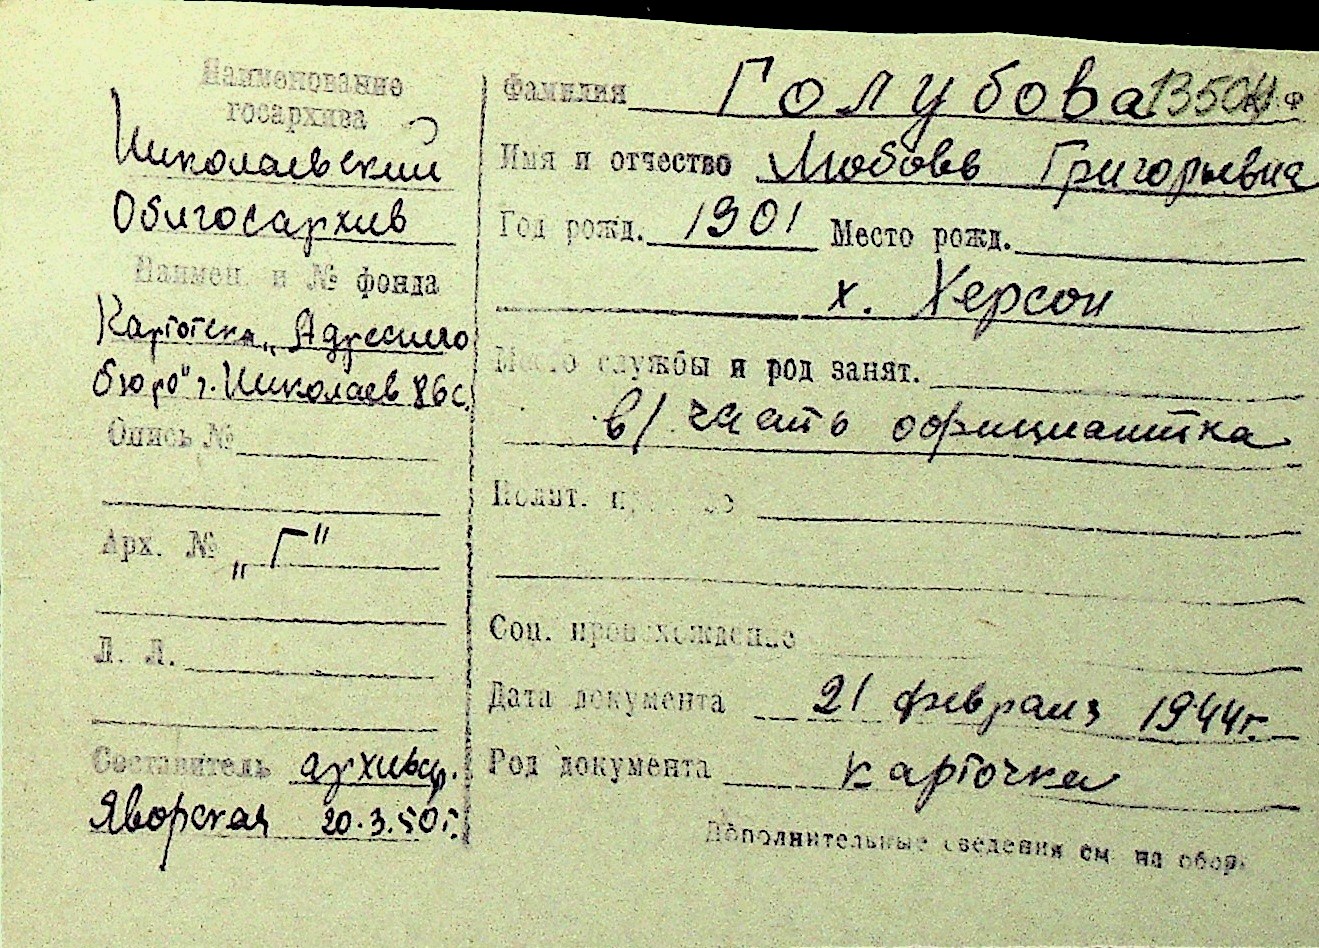 Наименование
госархива
Николаевский
Облгосархив
Наимен. и № фонда
Картотека „Адресного
бюро" г. Николаев 86 с.
Опись №
Арх. № „Г"
Л. Л.
Составитель архивар.
Яворская 20.3.50 г.
Фамилия Голубова 13504 Ф
Имя и отчество Любовь Григорьевна
Год рожд. 1901 Место рожд.
х. Херсон
Место службы и род занят.
в/часть официантка
Полит.
Соц. происхождение
Дата документа 21 февраля 1944г.
Род документа карточка
Дополнительные сведения см. на обор.